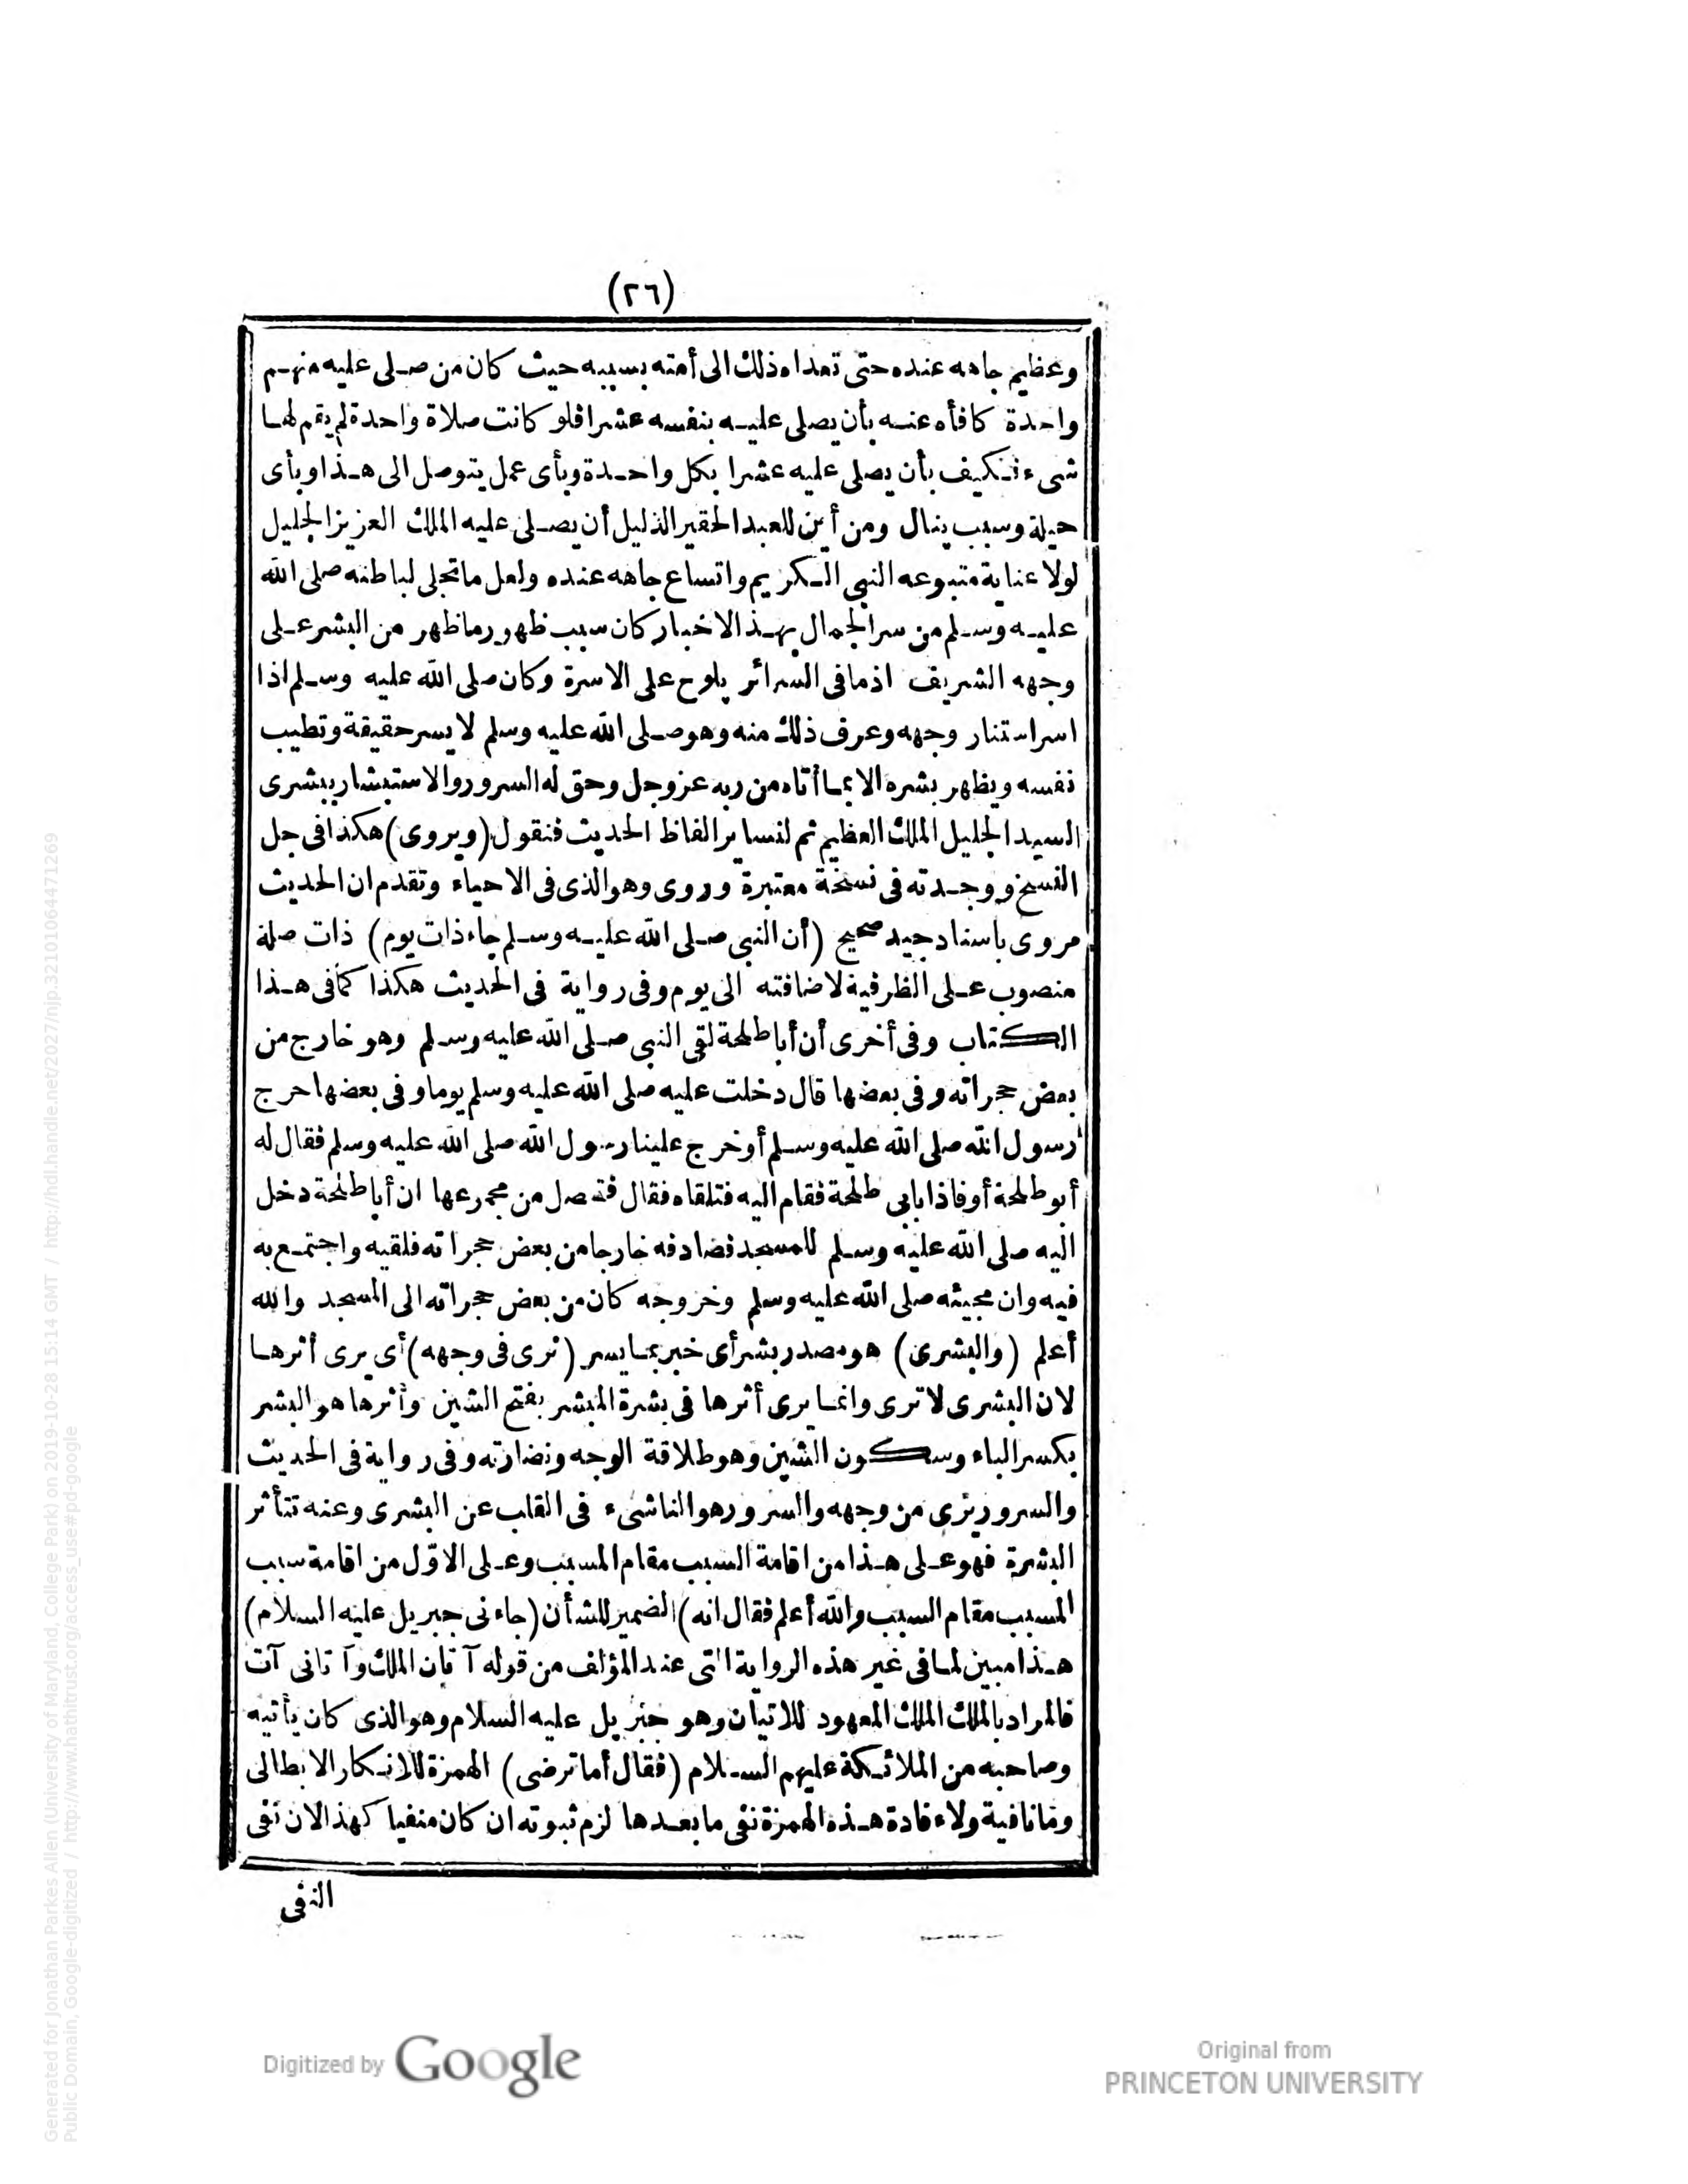 (٢٦)
وعظيم جاهه عنده حتى تعداه ذلك الى أمته بسببه حيث كان من صلى عليه منهم
واحدة كافأه عنه بأن يصلى عليه بنفسه عشرا فلو كانت صلاة واحدة لم يقم لها
شىء فكيف بأن يصلى عليه عشرا بكل واحدة وبأى عمل يتوصل الى هذا وبأى
حيلة وسبب ينال ومن أين للعبد الحقير الذليل أن يصلى عليه الملك العزيز الجليل
لولا عناية متبوعه النبي الكريم واتساع جاهه عنده ولعل ما تجلى لباطنه صلى الله
عليه وسلم من سر الجمال بهذا الاخبار كان سبب ظهور ما ظهر من البشر على
وجهه الشريف اذ ما فى السرائر يلوح على الاسرة وكان صلى الله عليه وسلم اذا
اسر استنار وجهه وعرف ذلك منه وهو صلى الله عليه وسلم لا يسر حقيقة وتطيب
نفسه ويظهر بشره الا بما أتاه من ربه عز وجل وحق له السرور والاستبشار ببشرى
السيد الجليل الملك العظيم ثم لنساير الفاظ الحديث فنقول (ويروى) هكذا فى جل
النسخ ووجدته فى نسخة معتبرة وروى وهو الذى فى الاحياء وتقدم ان الحديث
مروى باسناد جيد صحيح (أن النبي صلى الله عليه وسلم جاء ذات يوم) ذات صلة
منصوب على الظرفية لاضافته الى يوم وفى رواية فى الحديث هكذا كما فى هذا
الكتاب وفى أخرى أن أبا طلحة لقى النبي صلى الله عليه وسلم وهو خارج من
بعض حجراته وفى بعضها قال دخلت عليه صلى الله عليه وسلم يوما وفى بعضها خرج
رسول الله صلى الله عليه وسلم أو خرج علينا رسول الله صلى الله عليه وسلم فقال له
أبو طلحة أو فاذا بابى طلحة فقام اليه فتلقاه فقال فتحصل من مجموعها ان أبا طلحة دخل
اليه صلى الله عليه وسلم للمسجد فصادفه خارجا من بعض حجراته فلقيه واجتمع به
فيه وان مجيئه صلى الله عليه وسلم وخروجه كان من بعض حجراته الى المسجد والله
أعلم (والبشرى) هو مصدر بشر أى خبر بما يسر (ترى فى وجهه) أى يرى أثرها
لان البشرى لا ترى وانما يرى أثرها فى بشرة المبشر بفتح الشين وأثرها هو البشر
بكسر الباء وسكون الشين وهو طلاقة الوجه ونضارته وفى رواية فى الحديث
والسرور يرى من وجهه والسرور هو الناشىء فى القلب عن البشرى وعنه تتأثر
البشرة فهو على هذا من اقامة السبب مقام المسبب وعلى الاوّل من اقامة سبب
المسبب مقام السبب والله أعلم فقال انه) الضمير للشأن (جاءنى جبريل عليه السلام)
هذا مبين لما فى غير هذه الرواية التى عند المؤلف من قوله آتان الملك وآ تانى آت
فالمراد بالملك الملك المعهود للاتيان وهو جبريل عليه السلام وهو الذى كان يأتيه
وصاحبه من الملائكة عليهم السلام (فقال أما ترضى) الهمزة للانكار الابطالى
وما نافية ولافادة هذه الهمزة نفى ما بعدها لزم ثبوته ان كان منفيا كهذا لان نفى
النفى
Digitized by Google
Original from
PRINCETON UNIVERSITY
Generated for Jonathan Parkes Allen (University of Maryland, College Park) on 2019-10-28 15:14 GMT / http://hdl.handle.net/2027/njp.32101064471269
Public Domain, Google-digitized / http://www.hathitrust.org/access_use#pd-google